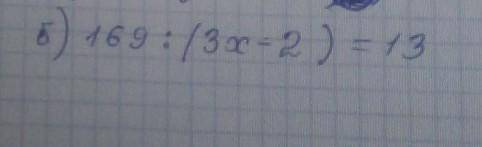 Б) 169 : (3x - 2) = 13